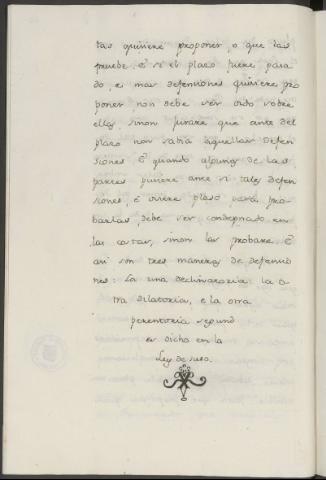 las quisiere proponer, o que las
pruebe. E si el plaso fuere pasa
do, e mas defensiones quisiere pro
poner, non debe ser oido sobre
ellas, sinon jurare que ante del
plaso non sabia aquellas defen
siones. E quando algunas de las
partes pusiere ante si tales defen
siones, e oviere plaso para pro
barlas, debe ser condepnado en
las costas, sinon las probare. E
asi son tres maneras de defensio
nes: La una declinatoria: la o
tra dilatoria, e la otra
perentoria segund
es dicho en la
Ley de suso.